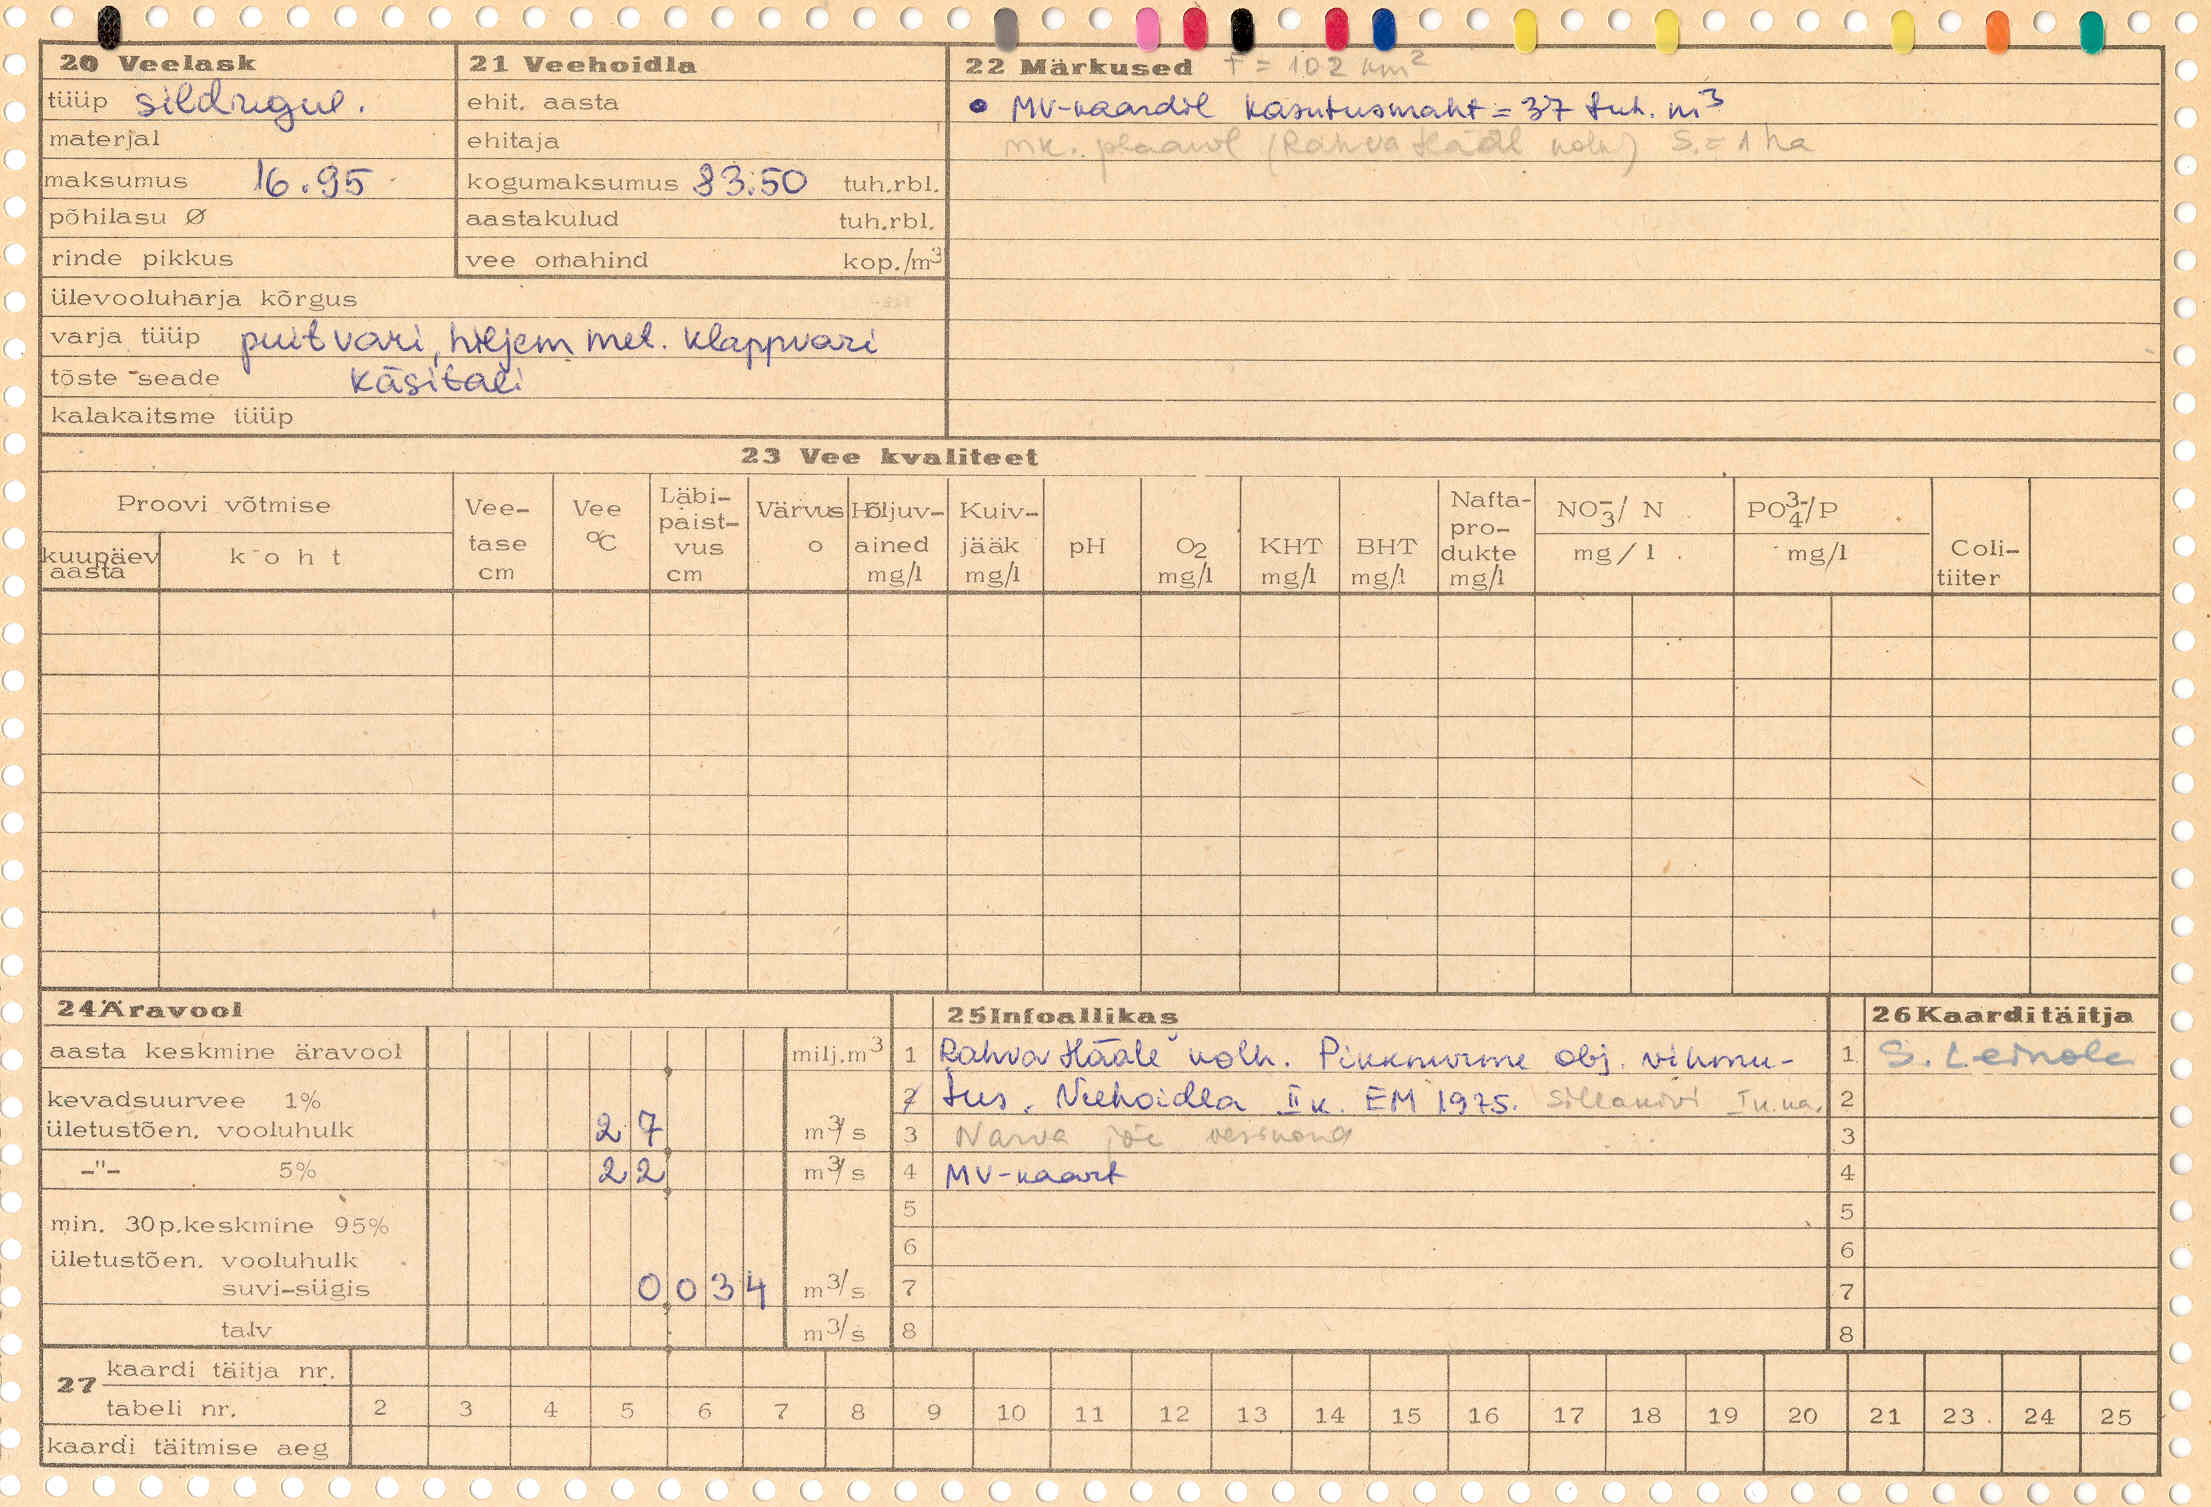 20 Veelask
tüüp sildregul.
materjal
maksumus 16.95
põhilasu Ø
rinde pikkus
ülevooluharja kõrgus
varja tüüp puitvari, hiljem met. klappvari
tõste seade käsitali
kalakaitsme tüüp
21 Veehoidla
ehit. aasta
ehitaja
kogumaksumus 83.50 tuh.rbl.
aastakulud tuh.rbl.
vee omahind kop./m³
22 Märkused F = 102 km²
• MV-kaardil kasutusmaht = 37 tuh. m³
mk. plaanil (Rahva Hääl kolh) S. = 1 ha
23 Vee kvaliteet
Proovi võtmise
kuupäev aasta
koht
Vee-tase cm
Vee °C
Läbi-paist-vus cm
Värvus o
Hõljuv-ained mg/l
Kuiv-jääk mg/l
pH
O₂ mg/l
KHT mg/l
BHT mg/l
Nafta-pro-dukte mg/l
NO₃⁻/N mg/l
PO₄³⁻/P mg/l
Coli-tiiter
24 Äravool
aasta keskmine äravool milj.m³
kevadsuurvee 1%
ületustõen. vooluhulk 27 m³/s
-"- 5% 22 m³/s
min. 30p.keskmine 95%
ületustõen. vooluhulk
suvi-sügis 0034 m³/s
talv m³/s
25 Infoallikas
1 Rahva Hääle kolh. Pikknurme obj. vihmu-
2 tus. Veehoidla II k. EM 1975. Sillakivi
3 Narva jõe vesikond
4 MV-kaart
5
6
7
8
26 Kaarditäitja
1 S. Leinola
2
3
4
5
6
7
8
27 kaardi täitja nr.
tabeli nr. 2 3 4 5 6 7 8 9 10 11 12 13 14 15 16 17 18 19 20 21 23 24 25
kaardi täitmise aeg